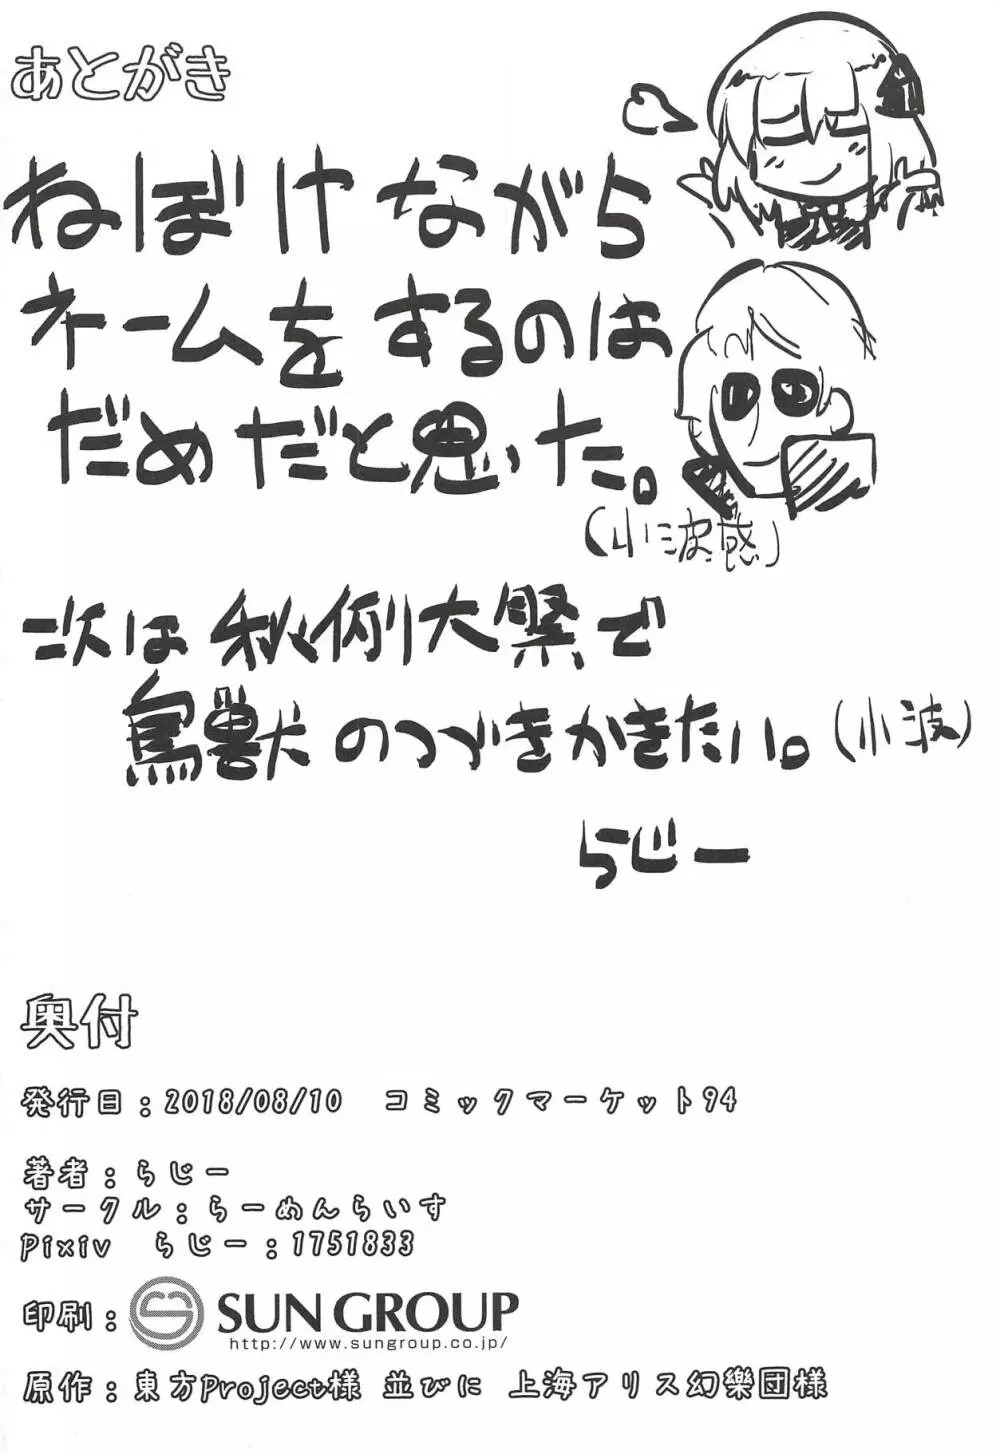 あとがき
ねぼけながら
ネームをするのは
だめだと思った。
(小波感)
次は秋例大祭で
鳥獣のつづきかきたい。(小波)
らじー
奥付
発行日:2018/08/10 コミックマーケット94
著者:らじー
サークル:らーめんらいす
Pixiv らじー:1751833
印刷:SUN GROUP
http://www.sungroup.co.jp/
原作:東方Project様 並びに 上海アリス幻樂団様